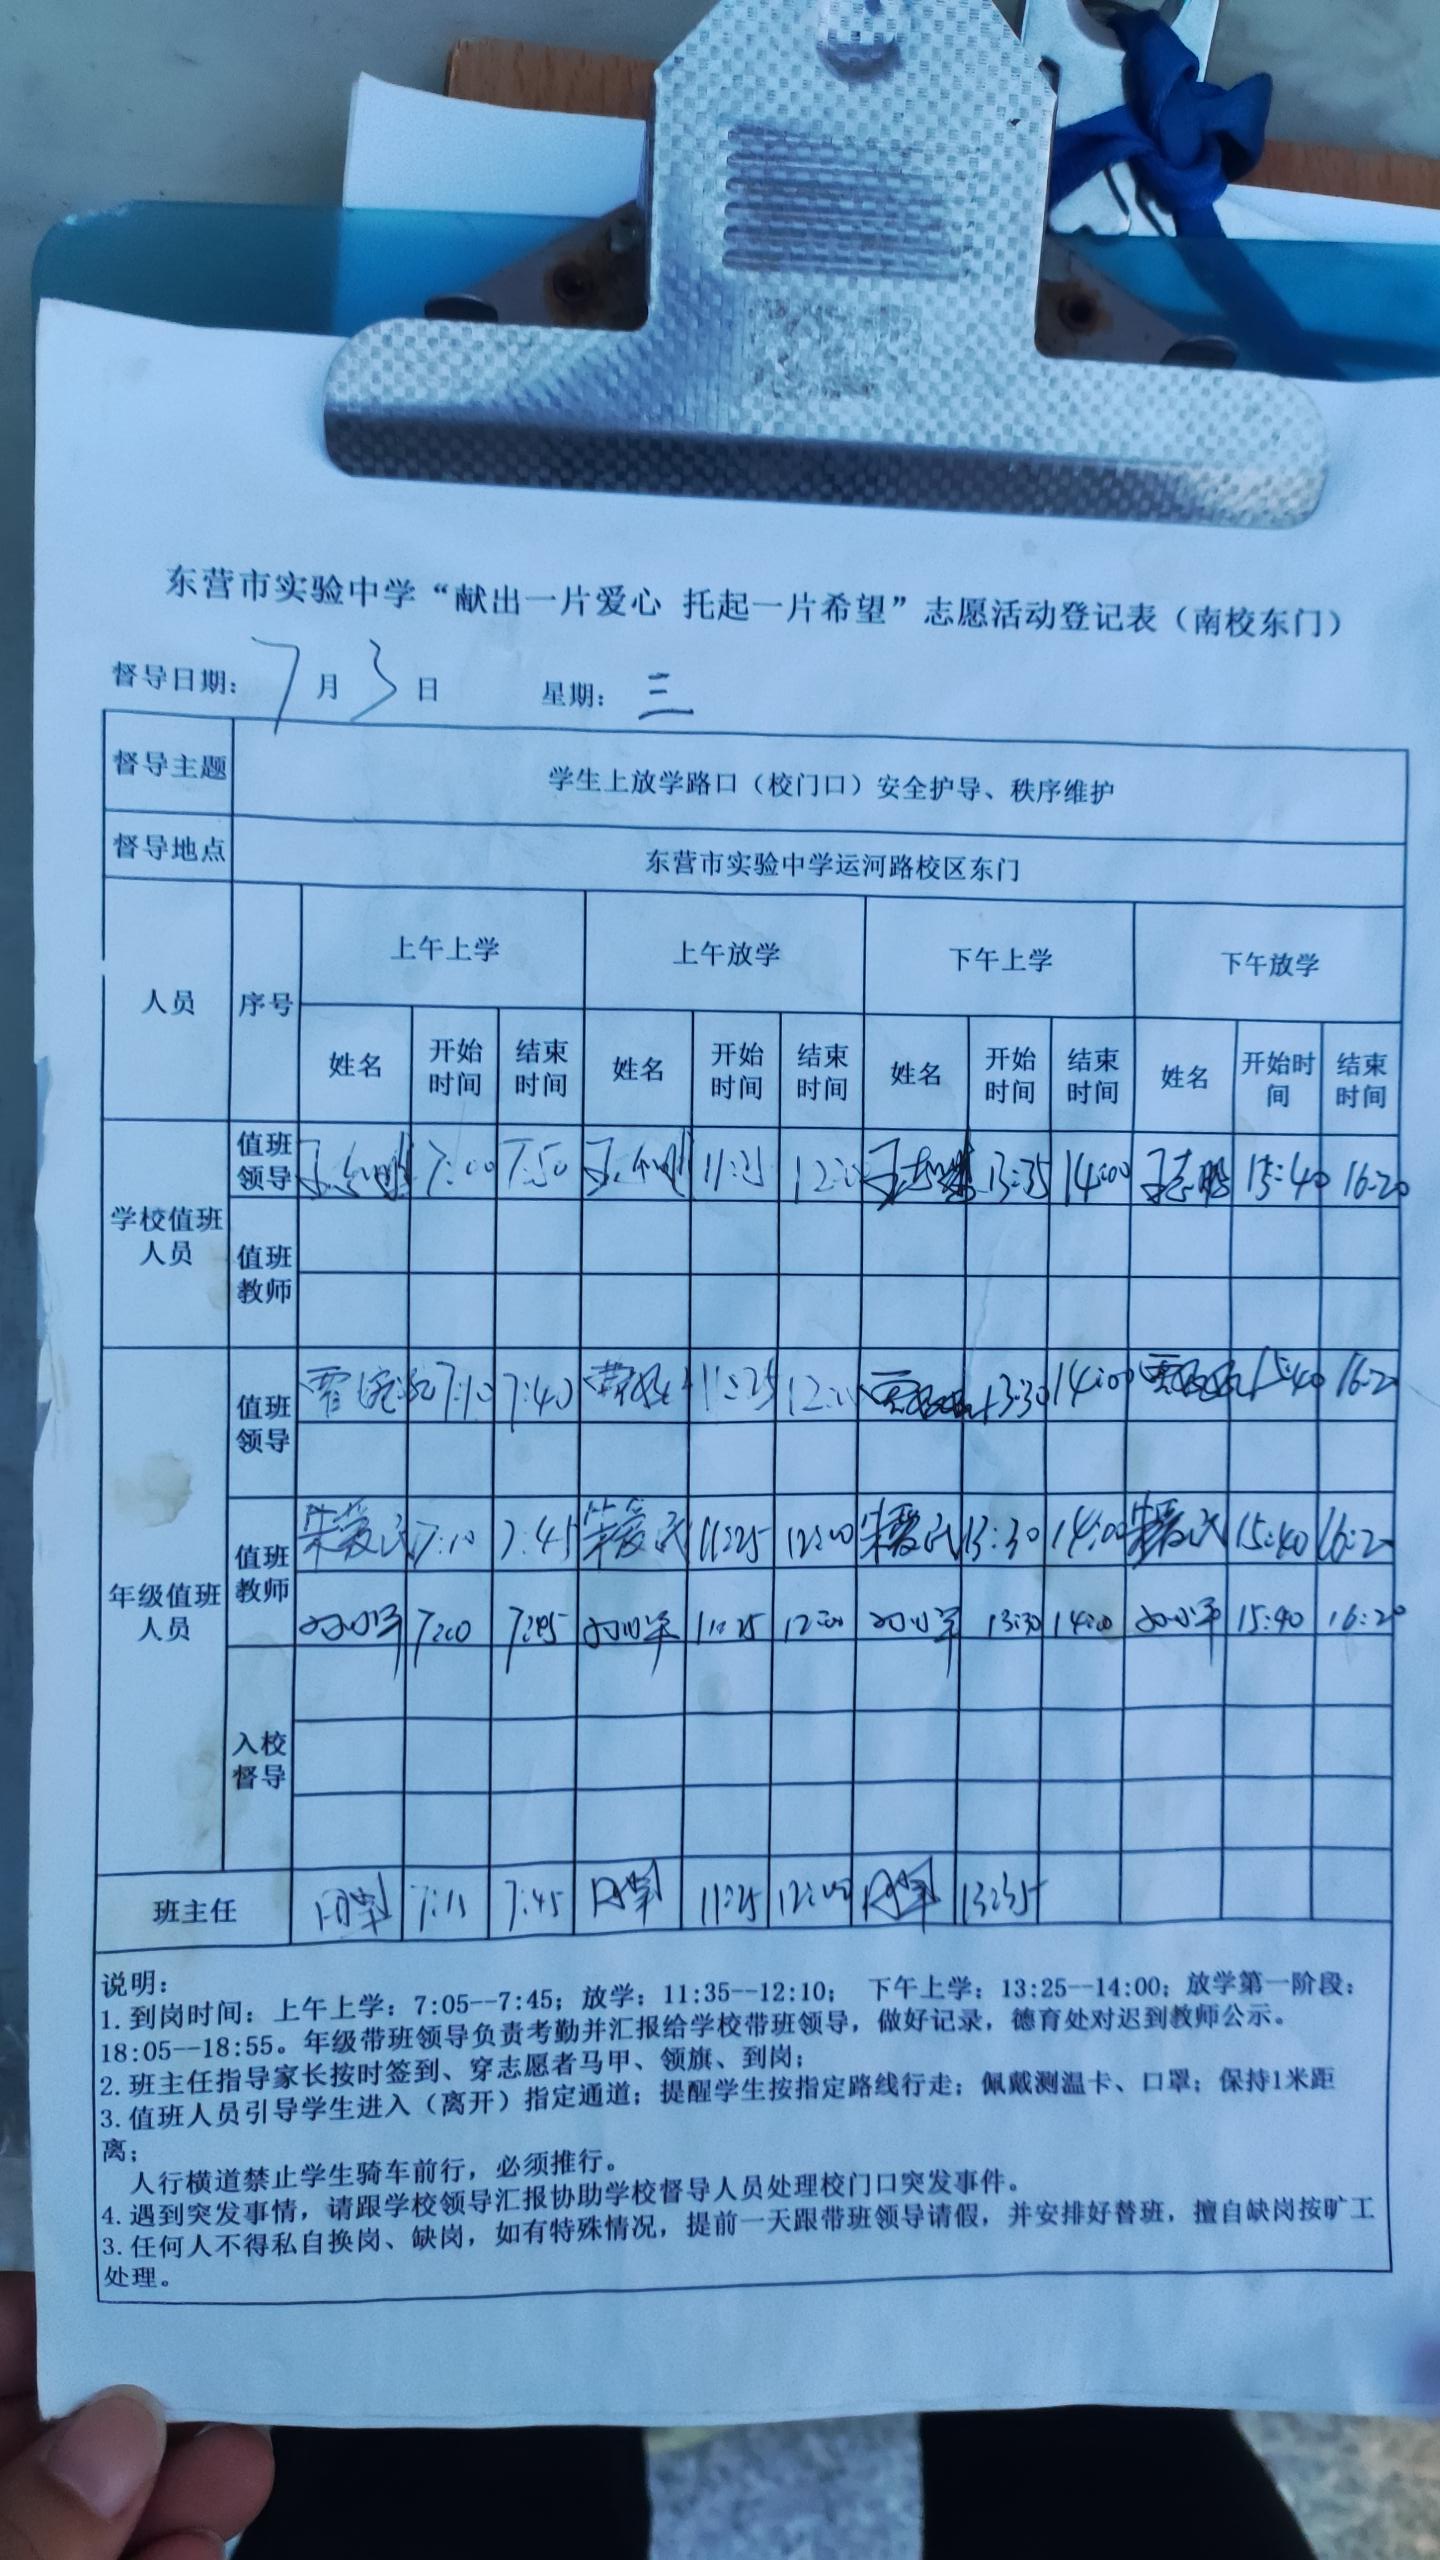 东营市实验中学“献出一片爱心 托起一片希望”志愿活动登记表（南校东门）
督导日期： 7 月 3 日 星期： 三
督导主题 学生上放学路口（校门口）安全护导、秩序维护
督导地点 东营市实验中学运河路校区东门
人员 序号 上午上学 上午放学 下午上学 下午放学
姓名 开始时间 结束时间 姓名 开始时间 结束时间 姓名 开始时间 结束时间 姓名 开始时间 结束时间
学校值班人员
值班领导 7:00 7:50 11:25 13:35 14:00 王志鹏 15:40 16:20
值班教师
年级值班人员
值班领导 7:10 7:40 11:25 13:30 14:00 15:40 16:20
值班教师 朱爱民 7:10 7:45 朱爱民 11:25 12:00 朱爱民 13:30 14:00 朱爱民 15:40 16:20
7:00 7:45 11:25 12:00 13:30 14:00 15:40 16:20
入校督导
班主任 7:45 11:25 12:00 13:35
说明：
1.到岗时间：上午上学：7:05--7:45；放学：11:35--12:10； 下午上学：13:25--14:00；放学第一阶段：
18:05--18:55。年级带班领导负责考勤并汇报给学校带班领导，做好记录，德育处对迟到教师公示。
2.班主任指导家长按时签到、穿志愿者马甲、领旗、到岗；
3.值班人员引导学生进入（离开）指定通道；提醒学生按指定路线行走；佩戴测温卡、口罩；保持1米距
离；
人行横道禁止学生骑车前行，必须推行。
4.遇到突发事情，请跟学校领导汇报协助学校督导人员处理校门口突发事件。
3.任何人不得私自换岗、缺岗，如有特殊情况，提前一天跟带班领导请假，并安排好替班，擅自缺岗按旷工
处理。